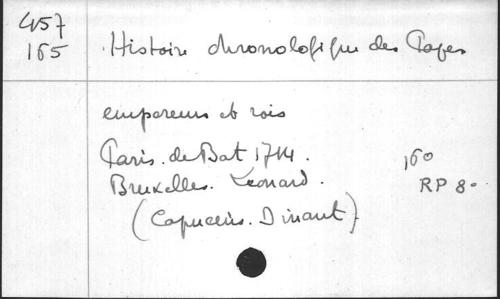 457
165
Histoire chronologique des Papes
empereurs et rois
Paris. de Bat 1714.
Bruxelles. Leonard.
(Capucins. Dinant)
160
RP 80